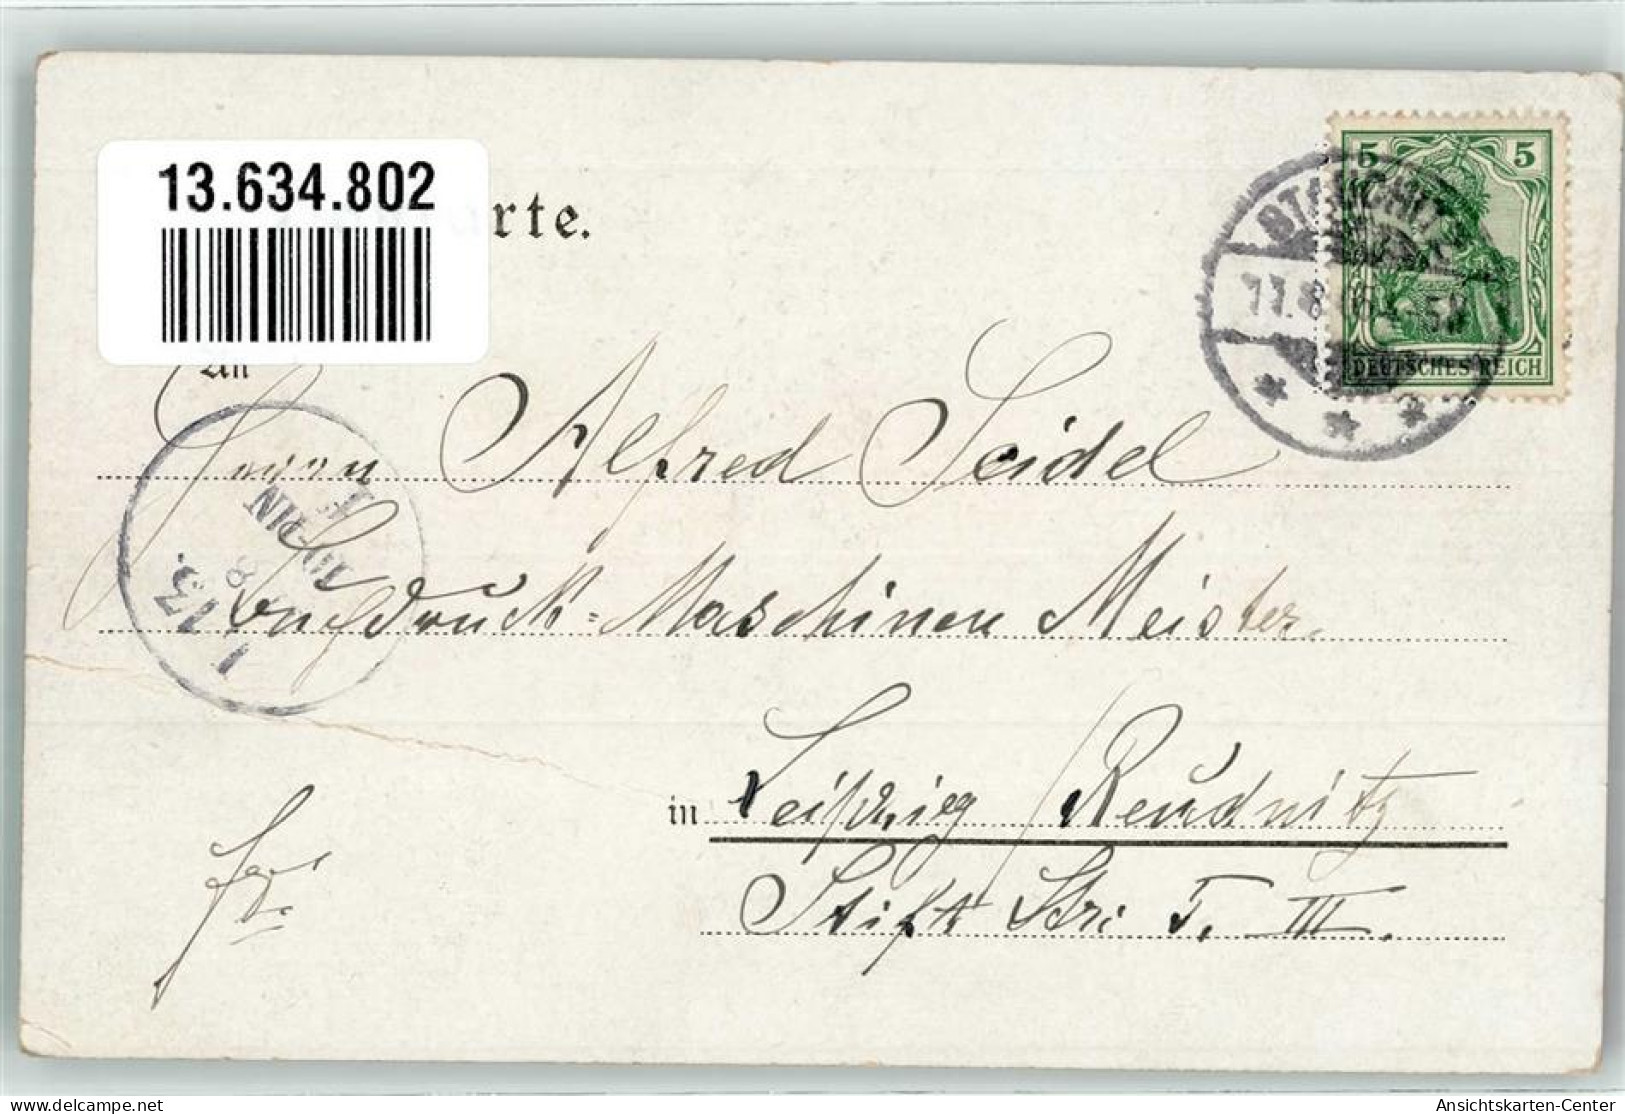 13.634.802
rte.
5 5
STAUCHITZ
11.8.06.
DEUTSCHES REICH
An
Herrn Alfred Seidel
Buchdruck-Maschinen Meister.
in Leipzig/Reudnitz
Stift Str. 7. III.
delcampe.net
Ansichtskarten-Center